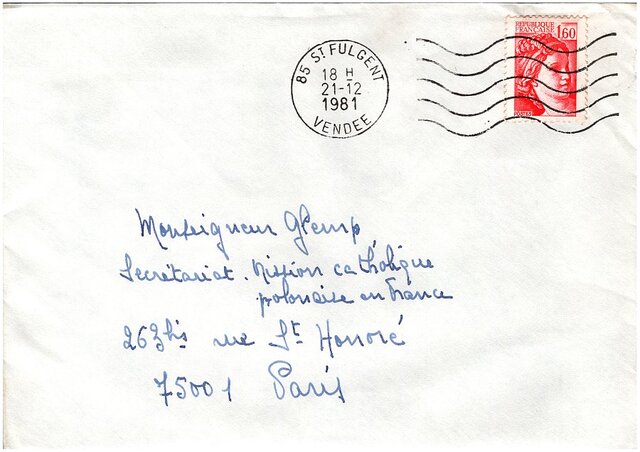 85 ST FULGENT
18 H
21-12
1981
VENDEE
REPUBLIQUE
FRANÇAISE 1,60
Monseigneur Glemp
Secrétariat. Mission catholique
polonaise en France
263 bis rue St Honoré
75001 Paris